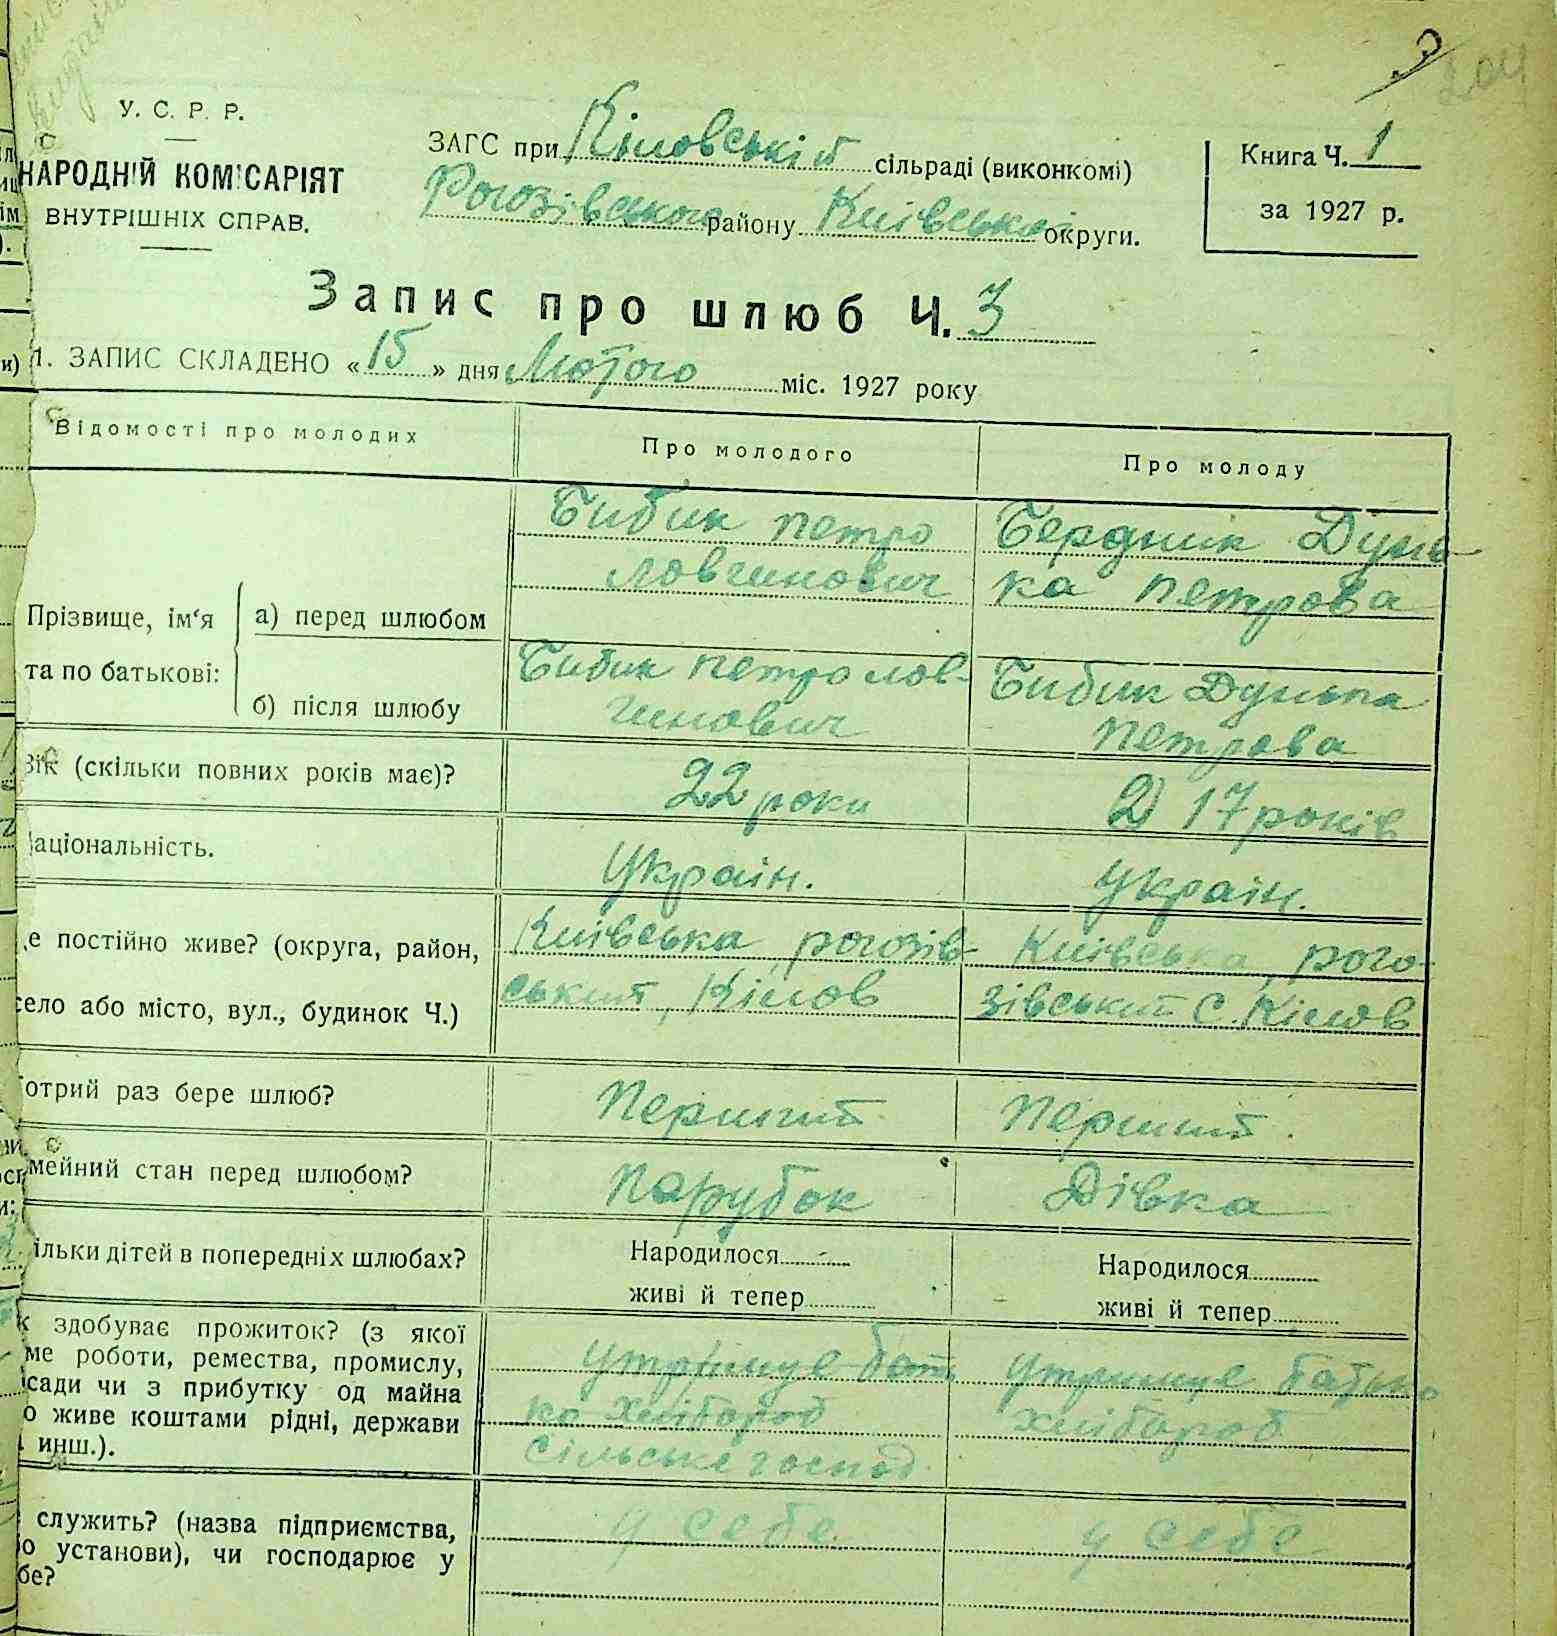 204
У. С. Р. Р.
НАРОДНІЙ КОМІСАРІЯТ
ВНУТРІШНІХ СПРАВ.
ЗАГС при Кіловській сільраді (виконкомі)
Рогозівського району Київської округи.
Книга Ч. 1
за 1927 р.
Запис про шлюб Ч. 3
1. ЗАПИС СКЛАДЕНО «15» дня Лютого міс. 1927 року
Відомості про молодих
Про молодого
Про молоду
Прізвище, ім‘я
та по батькові:
а) перед шлюбом
Бибик Петро
Ловгинович
Бердник Дунь-
ка Петрова
б) після шлюбу
Бибик Петро Лов-
гинович
Бибик Дунька
Петрова
Вік (скільки повних років має)?
22 роки
17 років
Національність.
Україн.
Україн.
де постійно живе? (округа, район,
село або місто, вул., будинок Ч.)
Київська, рогозів-
ський, Кілов
Київська, рого-
зівський с. Кілов
Котрий раз бере шлюб?
Перший
Перший.
мейний стан перед шлюбом?
Парубок
Дівка
ільки дітей в попередніх шлюбах?
Народилося
живі й тепер
Народилося
живі й тепер
к здобуває прожиток? (з якої
ме роботи, ремества, промислу,
сади чи з прибутку од майна
о живе коштами рідні, держави
инш.).
утримує бать
ко хлібороб
сільське господ.
утримує батько
хлібороб
служить? (назва підприємства,
о установи), чи господарює у
бе?
у себе
у себе